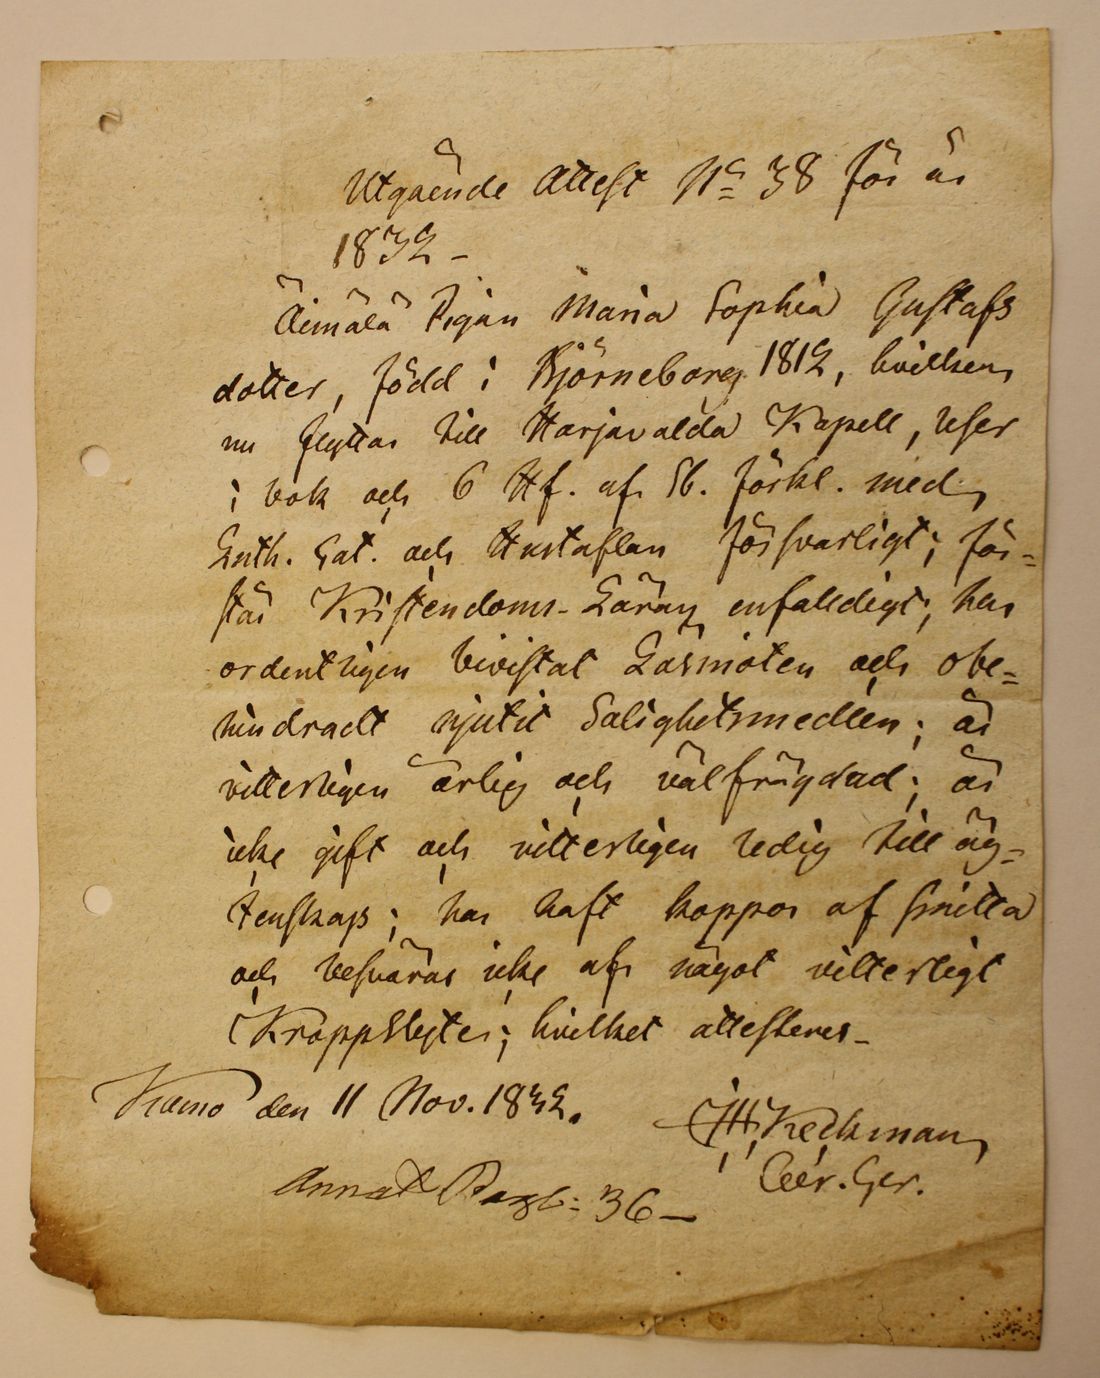 Utgående Attest No 38 för år
1832 –
Äimälä Pigan Maria Sophia Gustafs
dotter, född i Björneborg 1812, hvilken
nu flyttar till Harjavalda Kapell, läser
i bok och 6 Hf. af Sb. förkl. med
Luth. Cat. och Hustaflan försvarligt; för=
står Kristendoms-Läran enfaldigt; har
ordentligen bivistat Läsmöten och obe=
hindradt njutit Salighetsmedlen; är
vitterligen ärlig och välfrägdad; är
icke gift och vitterligen ledig till äg=
tenskap; har haft koppor af smitta
och besväras icke af något vitterligt
Kroppslyte; hvilket attesteras –
Kumo den 11 Nov. 1832.
Keckman
Annot Pag: 36 –